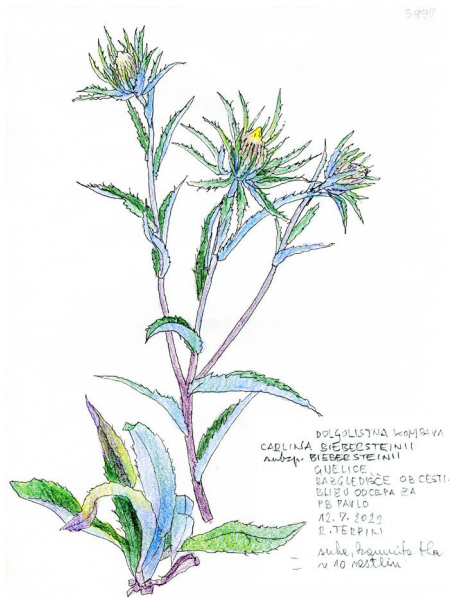 3998
DOLGOLISTNA KOMPAVA
CARLINA BIEBERSTEINII
subsp. BIEBERSTEINII
GNELICE
RAZGLEDIŠČE OB CESTI
BLIZU ODCEPA ZA
PB PAVLO
12. 7. 2022
R. TERPIN
suha, travnata tla
≈ 10 rastlin